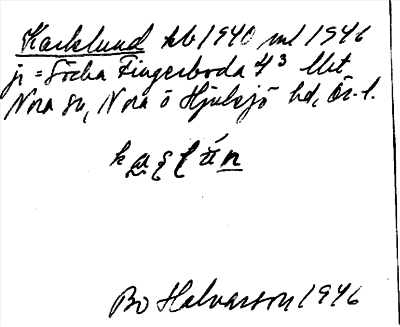 Karlslund kb 1940 ml 1946
jr = Södra Fingerboda 4³ Mst
Nora sn, Nora o Hjulsjö hd, Ör. l.
Bo Halvarson 1946